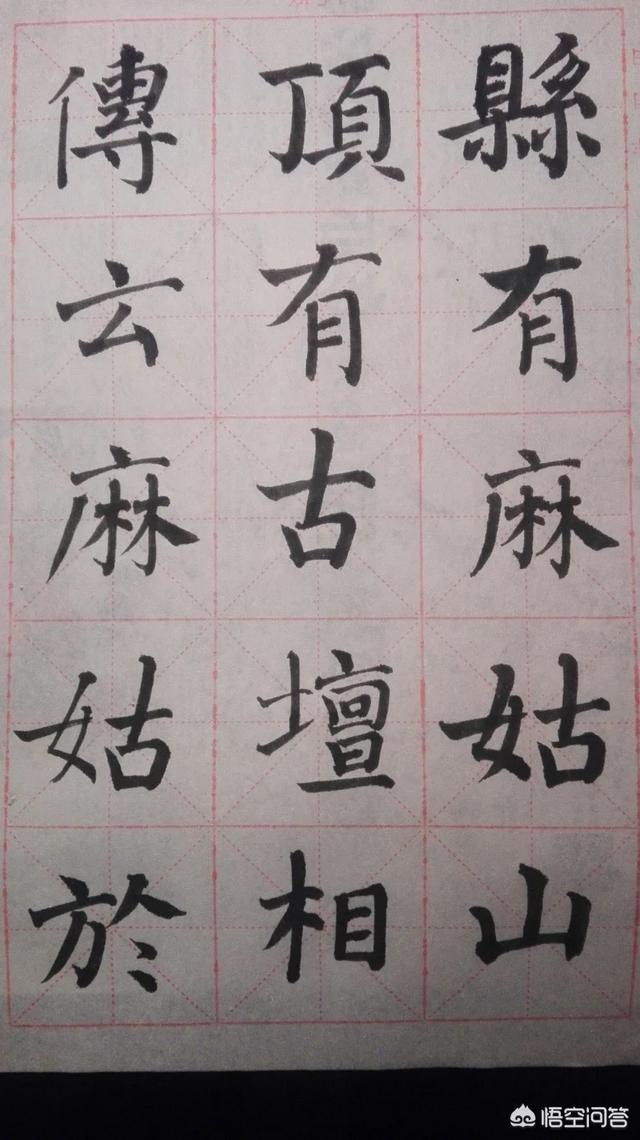 縣有麻姑山
頂有古壇相
傳云麻姑於
悟空问答